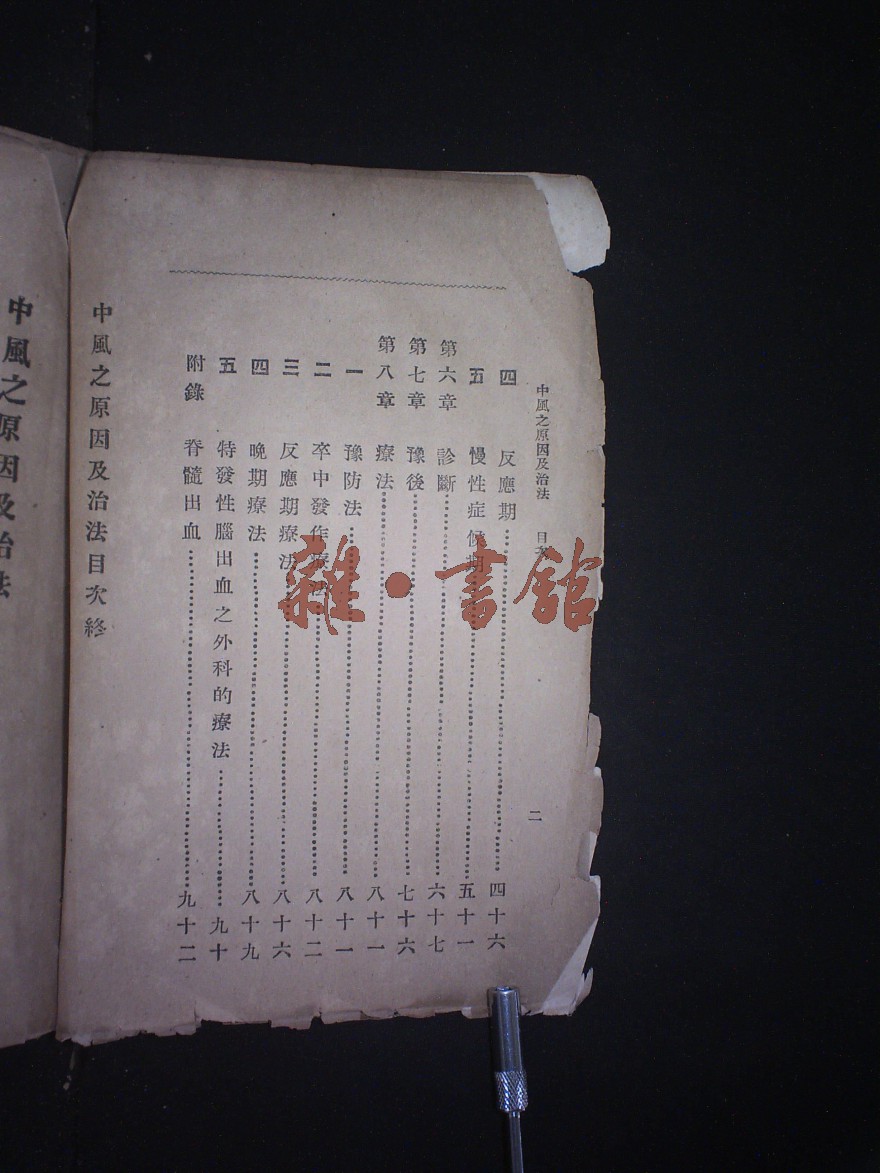 中風之原因及治法 目次 二
四 反應期 四十六
五 慢性症候期 五十一
第六章 診斷 六十七
第七章 豫後 七十六
第八章 療法 八十一
一 豫防法 八十一
二 卒中發作療法 八十二
三 反應期療法 八十六
四 晚期療法 八十九
五 特發性腦出血之外科的療法 九十
附錄 脊髓出血 九十二
中風之原因及治法目次終
中風之原因及治法
雜·書館